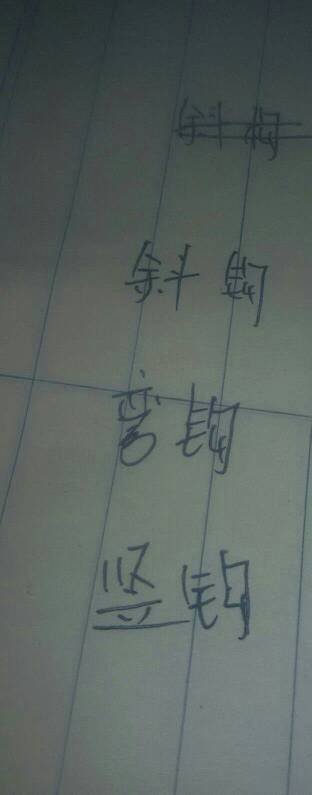 斜钩
斜钩
弯钩
竖钩